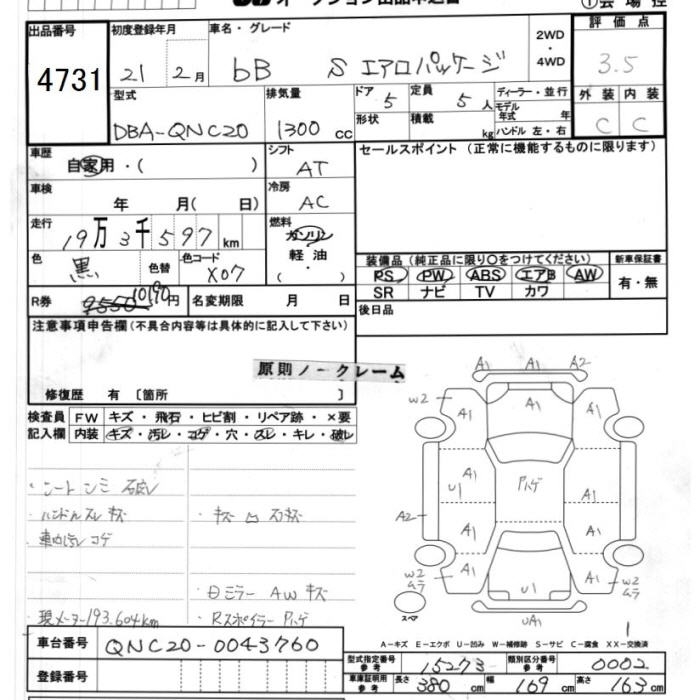 オークション出品申込書
①会場控
出品番号 4731
初度登録年月 21年 2月
車名・グレード bB S エアロパッケージ
2WD・4WD
評価点 3.5
型式 DBA-QNC20
排気量 1300 cc
ドア 5 定員 5人
形状 積載 kg
ディーラー・並行
モデル年式 年
ハンドル 左・右
外装 内装
C C
車歴 自家用・( )
シフト AT
セールスポイント (正常に機能するものに限ります)
車検 年 月( 日)
冷房 AC
走行 19万3千597km
燃料 ガソリン 軽油・( )
色 黒 色替 色コード X07
装備品 (純正品に限り○をつけてください) 新車保証書
PS PW ABS エアB AW 有・無
SR ナビ TV カワ
R券 9550 10190円 名変期限 月 日
後日品
注意事項申告欄(不具合内容等は具体的に記入して下さい)
原則ノークレーム
修復歴 有〔箇所 〕
検査員記入欄 FW キズ・飛石・ヒビ割・リペア跡・×要
内装 キズ・汚レ・コゲ・穴・スレ・キレ・破レ
・シートシミ 破レ
・ハンドルスレ キズ
・キズ凹 石キズ
・車内汚レ コゲ
・日ミラー AW キズ
・現メーター193,604km
・Rスポイラー ハゲ
A1 A1 A2
W2 A1 A1 A1 W2
A1 A1
U1 ハゲ A1
A2 A1 A1
W2 ムラ A1 U1 A1 W2 ムラ
スペア UA1
1
A-キズ E-エクボ U-凹み W-補修跡 S-サビ C-腐食 XX-交換済
車台番号 QNC20-0043760
型式指定番号 参考 15273 類別区分番号 参考 0002
登録番号
車庫証明用 参考 長さ 380cm 幅 169cm 高さ 163cm